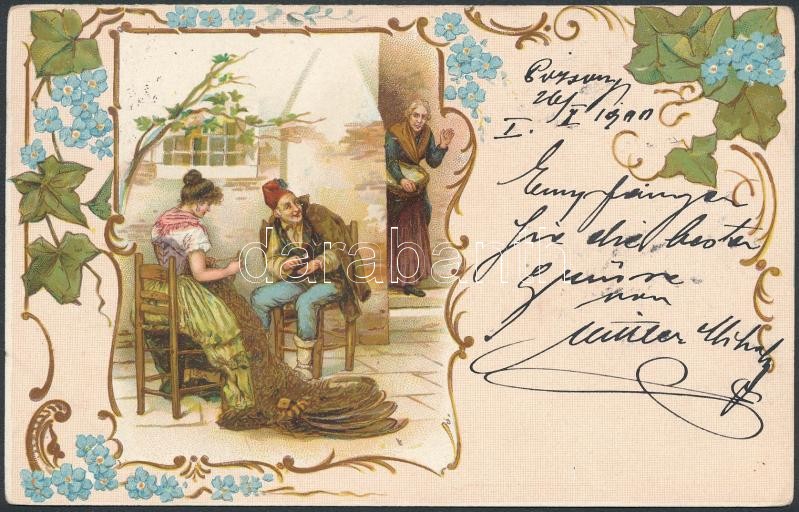 Pozsony
26/I 1900
Empfangen
Sie die besten
Grüsse
von
Müller Mihály
darabanth